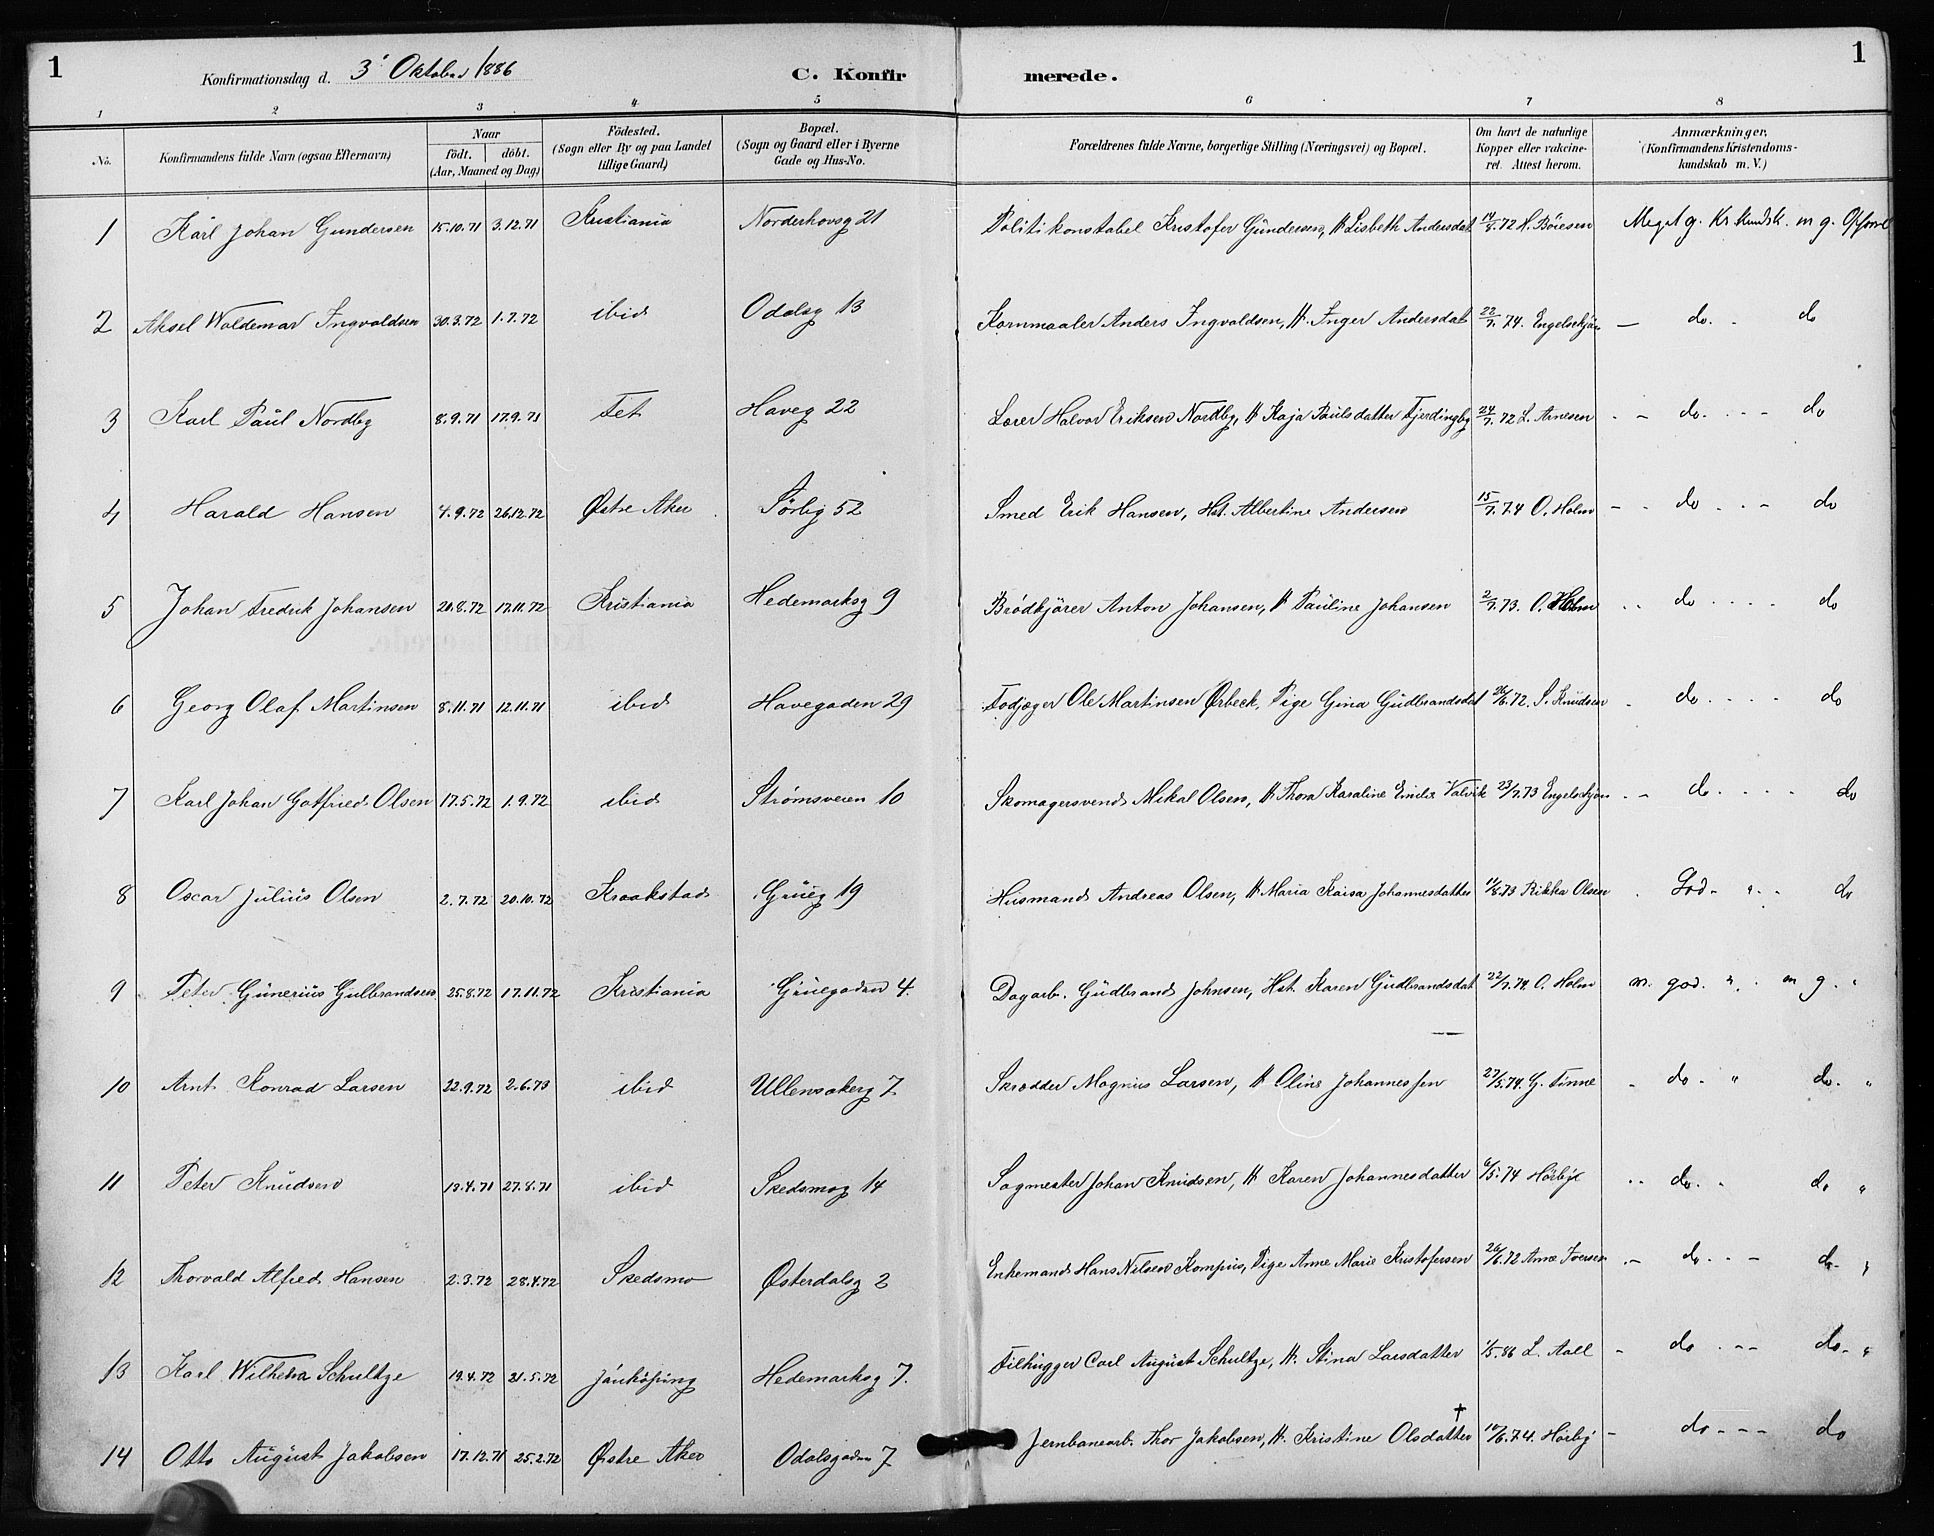 1 Konfirmationsdag d. 3' Oktober 1886 C. Konfirmerede. 1
1 2 3 4 5 6 7 8
No. Konfirmandens fulde Navn (ogsaa Efternavn) Naar födt. döbt. (Aar, Maaned og Dag) Födested. (Sogn eller By og paa Landet tillige Gaard) Bopæl. (Sogn og Gaard eller i Byerne Gade og Hus-No. Forældrenes fulde Navne, borgerlige Stilling (Næringsvei) og Bopæl. Om havt de naturlige Kopper eller vakcineret. Attest herom. Anmærkninger, (Konfirmandens Kristendomskundskab m. V.)
1 Karl Johan Gundersen 15.10.71 3.12.71 Kristiania Norderhovsg 21 Politikonstabel Kristofer Gundersen, H. Lisbeth Andersdat 14/8.72 H. Böiesen Meget g. Kr. kundsk. m g. Opförsel
2 Aksel Waldemar Ingvaldsen 30.3.72 1.7.72 ibid Odalsg 13 Kornmaaler Anders Ingvaldsen, H. Inger Andersdat 22/7.74. Engelskjön — do. - do
3 Karl Paul Nordby 8.9.71 17.9.71 Fet Haveg 22 Lærer Halvor Eriksen Nordby, H Kaja Paulsdatter Fjerdingby 24/7.72 L. Arnesen - - do. - - - do
4 Harald Hansen 4.9.72 26.12.72 Østre Aker Sörbg 52 Smed Erik Hansen, Hst. Albertine Andersen 15/7.74 O. Holm - - do - - - do
5 Johan Fredrik Johansen 20.8.72 17.11.72 Kristiania Hedemarksg 9 Brødkjörer Anton Johansen, H Pauline Johansen 2/7.73. O. Holm - - do - - - - do
6 Georg Olaf Martinsen 8.11.71 12.11.71 ibid Havegaden 29 Fodjæger Ole Martinsen Ørbeck, Pige Gina Gudbrandsdat 26/6.72. S. Knudsen - do - - - - do
7 Karl Johan Gotfried Olsen 17.5.72 1.9.72 ibid Strømsveien 10 Skomagersvend Mikal Olsen, H Thora Karaline Emilie Valvik 23/7.73 Engelskjön - - do - - - - do
8 Oscar Julius Olsen 2.7.72 20.10.72 Kraakstad Grüeg 19 Husmand Andreas Olsen, H Maria Kaisa Johannesdatter 11/8.73 Rikka Olsen - God - " - - do
9 Peter Gunerius Gulbrandsen 25.8.72 17.11.72 Kristiania Gruegaden 4. Dagarb. Gudbrand Johnsen, Hst. Karen Gudbrandsdat 22/7.74. O. Holm m. god. " . m g. "
10 Arnt Konrad Larsen 22.9.72 2.6.73 ibid Ullensakerg 7. Skrædder Magnus Larsen, H Oline Johannessen 27/5.74. G. Finne - do - " do. "
11 Peter Knudsen 19.4.71 27.8.71 ibid Skedsmog 14 Sagmester Johan Knudsen, H Karen Johannesdatter 6/5.74 Hörbye - - do. - do "
12 Thorvald Alfred Hansen 2.3.72 28.4.72 Skedsmo Østerdalsg 2 Enkemand Hans Nilsen Kompus, Pige Anne Marie Kristofersen 26/6.72 Anne Iversen - - do - - - do - "
13 Karl Wilhelm Schultze 19.4.72 21.5.72 Jönköping Hedemarksg 7. Filhugger Carl August Schultze, H. Stina Larsdatter 1/5.86 L. Aall - do - - - do - "
14 Otto August Jakobsen 17.12.71 25.2.72 Østre Aker Odalsgaden 7 Jernbanearb. Thor Jakobsen, H. Kristine Olsdatter † 10/6.74. Hörbj - do - - - do